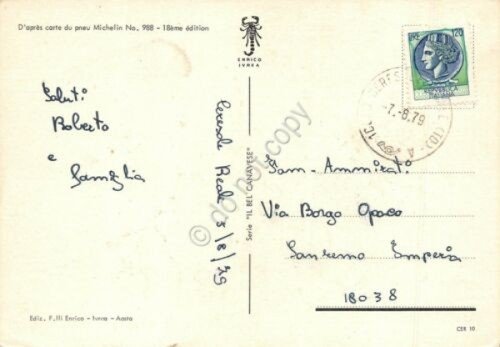 D'après carte du pneu Michelin No. 988 - 18ème édition
ENRICO
IVREA
LIRE 120
Saluti
Roberto
e
Famiglia
Ceresole Reale 5/8/79
Serie "IL BEL CANAVESE"
-7.-8.79
(TO)
Fam. Ammirati
Via Borgo Opaco
Sanremo Imperia
18038
Ediz. F.lli Enrico - Ivrea - Aosta
CER 10
© do not copy